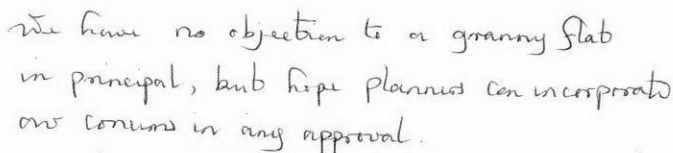 We have no objection to a granny flat
in principal, but hope planners can incorporate
our concerns in any approval.